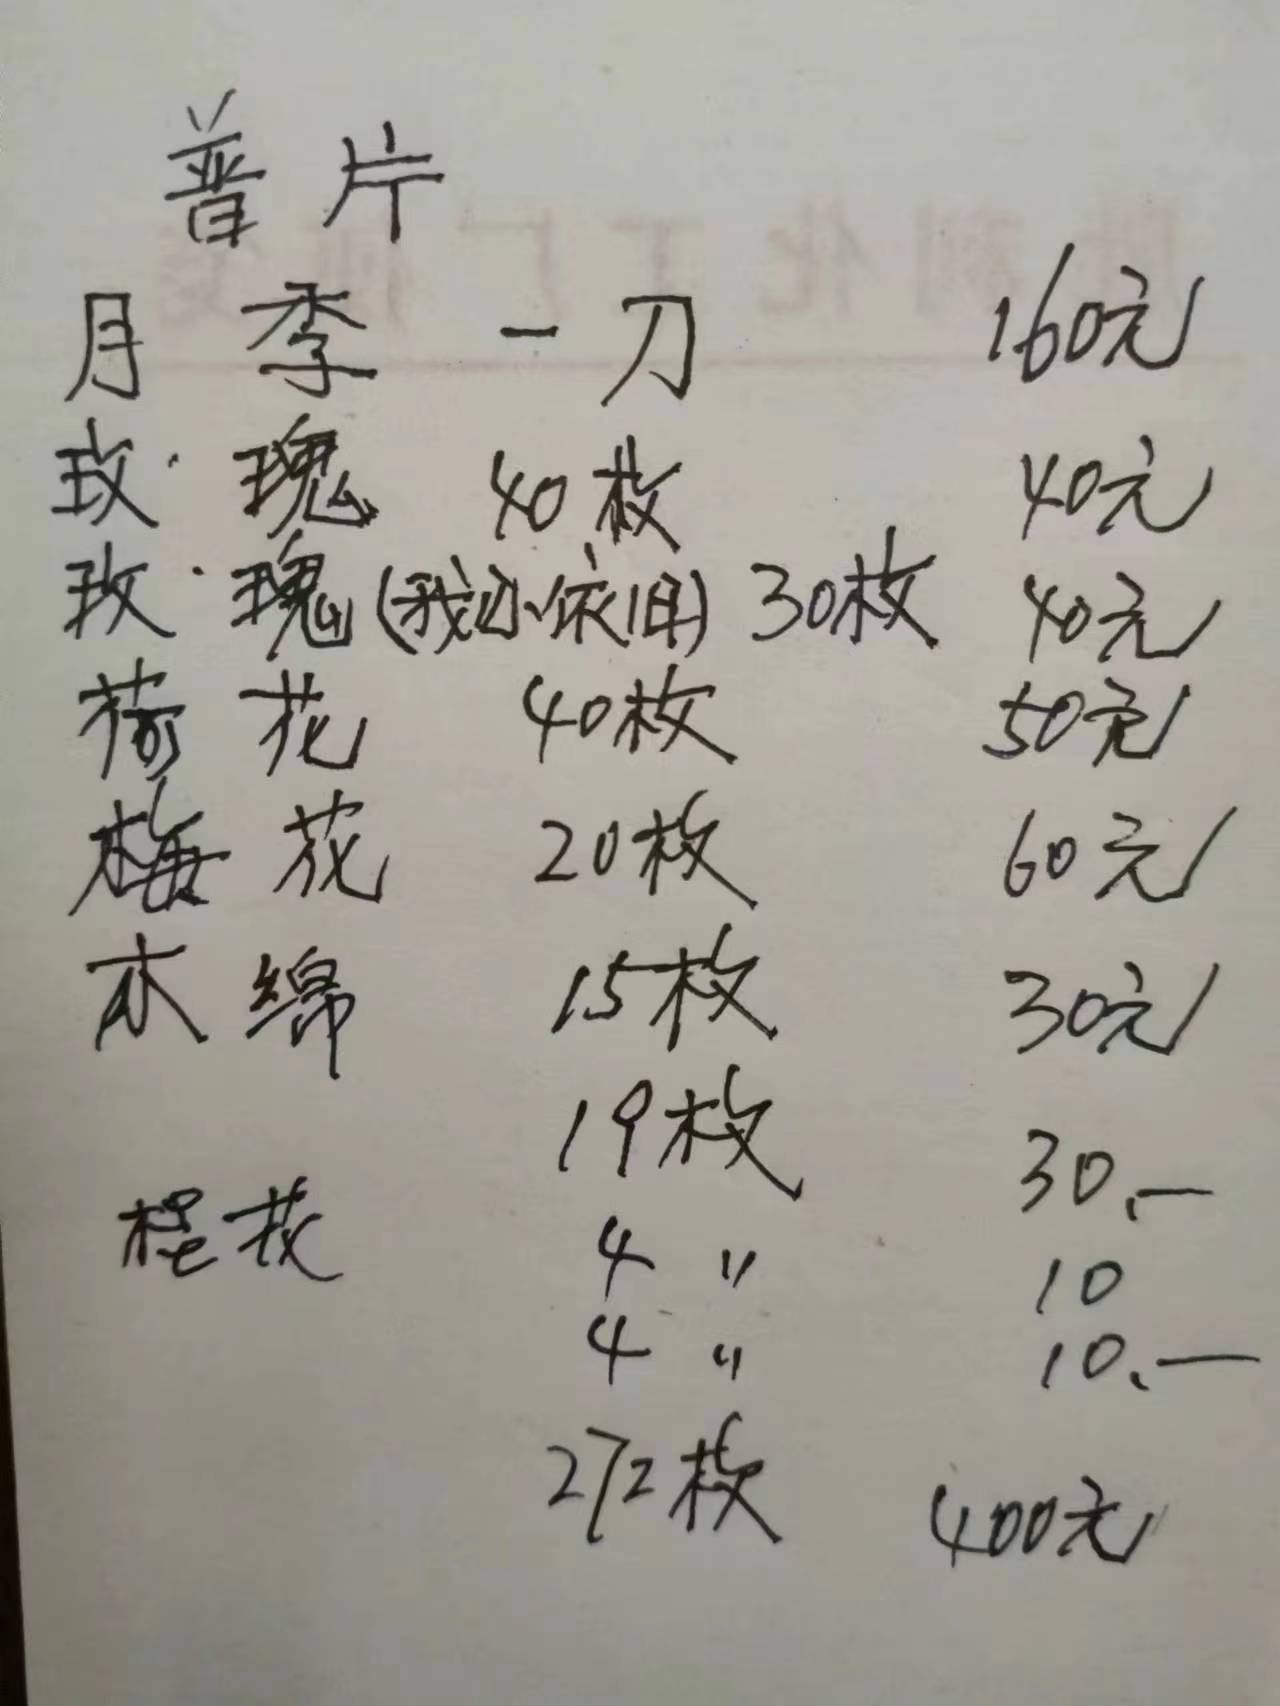 普片
月季 一刀 160元
玫·瑰 40枚 40元
玫·瑰(我心依旧) 30枚 40元
荷花 40枚 50元
梅花 20枚 60元
木绵 15枚 30元
19枚 30.—
桂花 4 〃 10
4 〃 10.—
272枚 400元